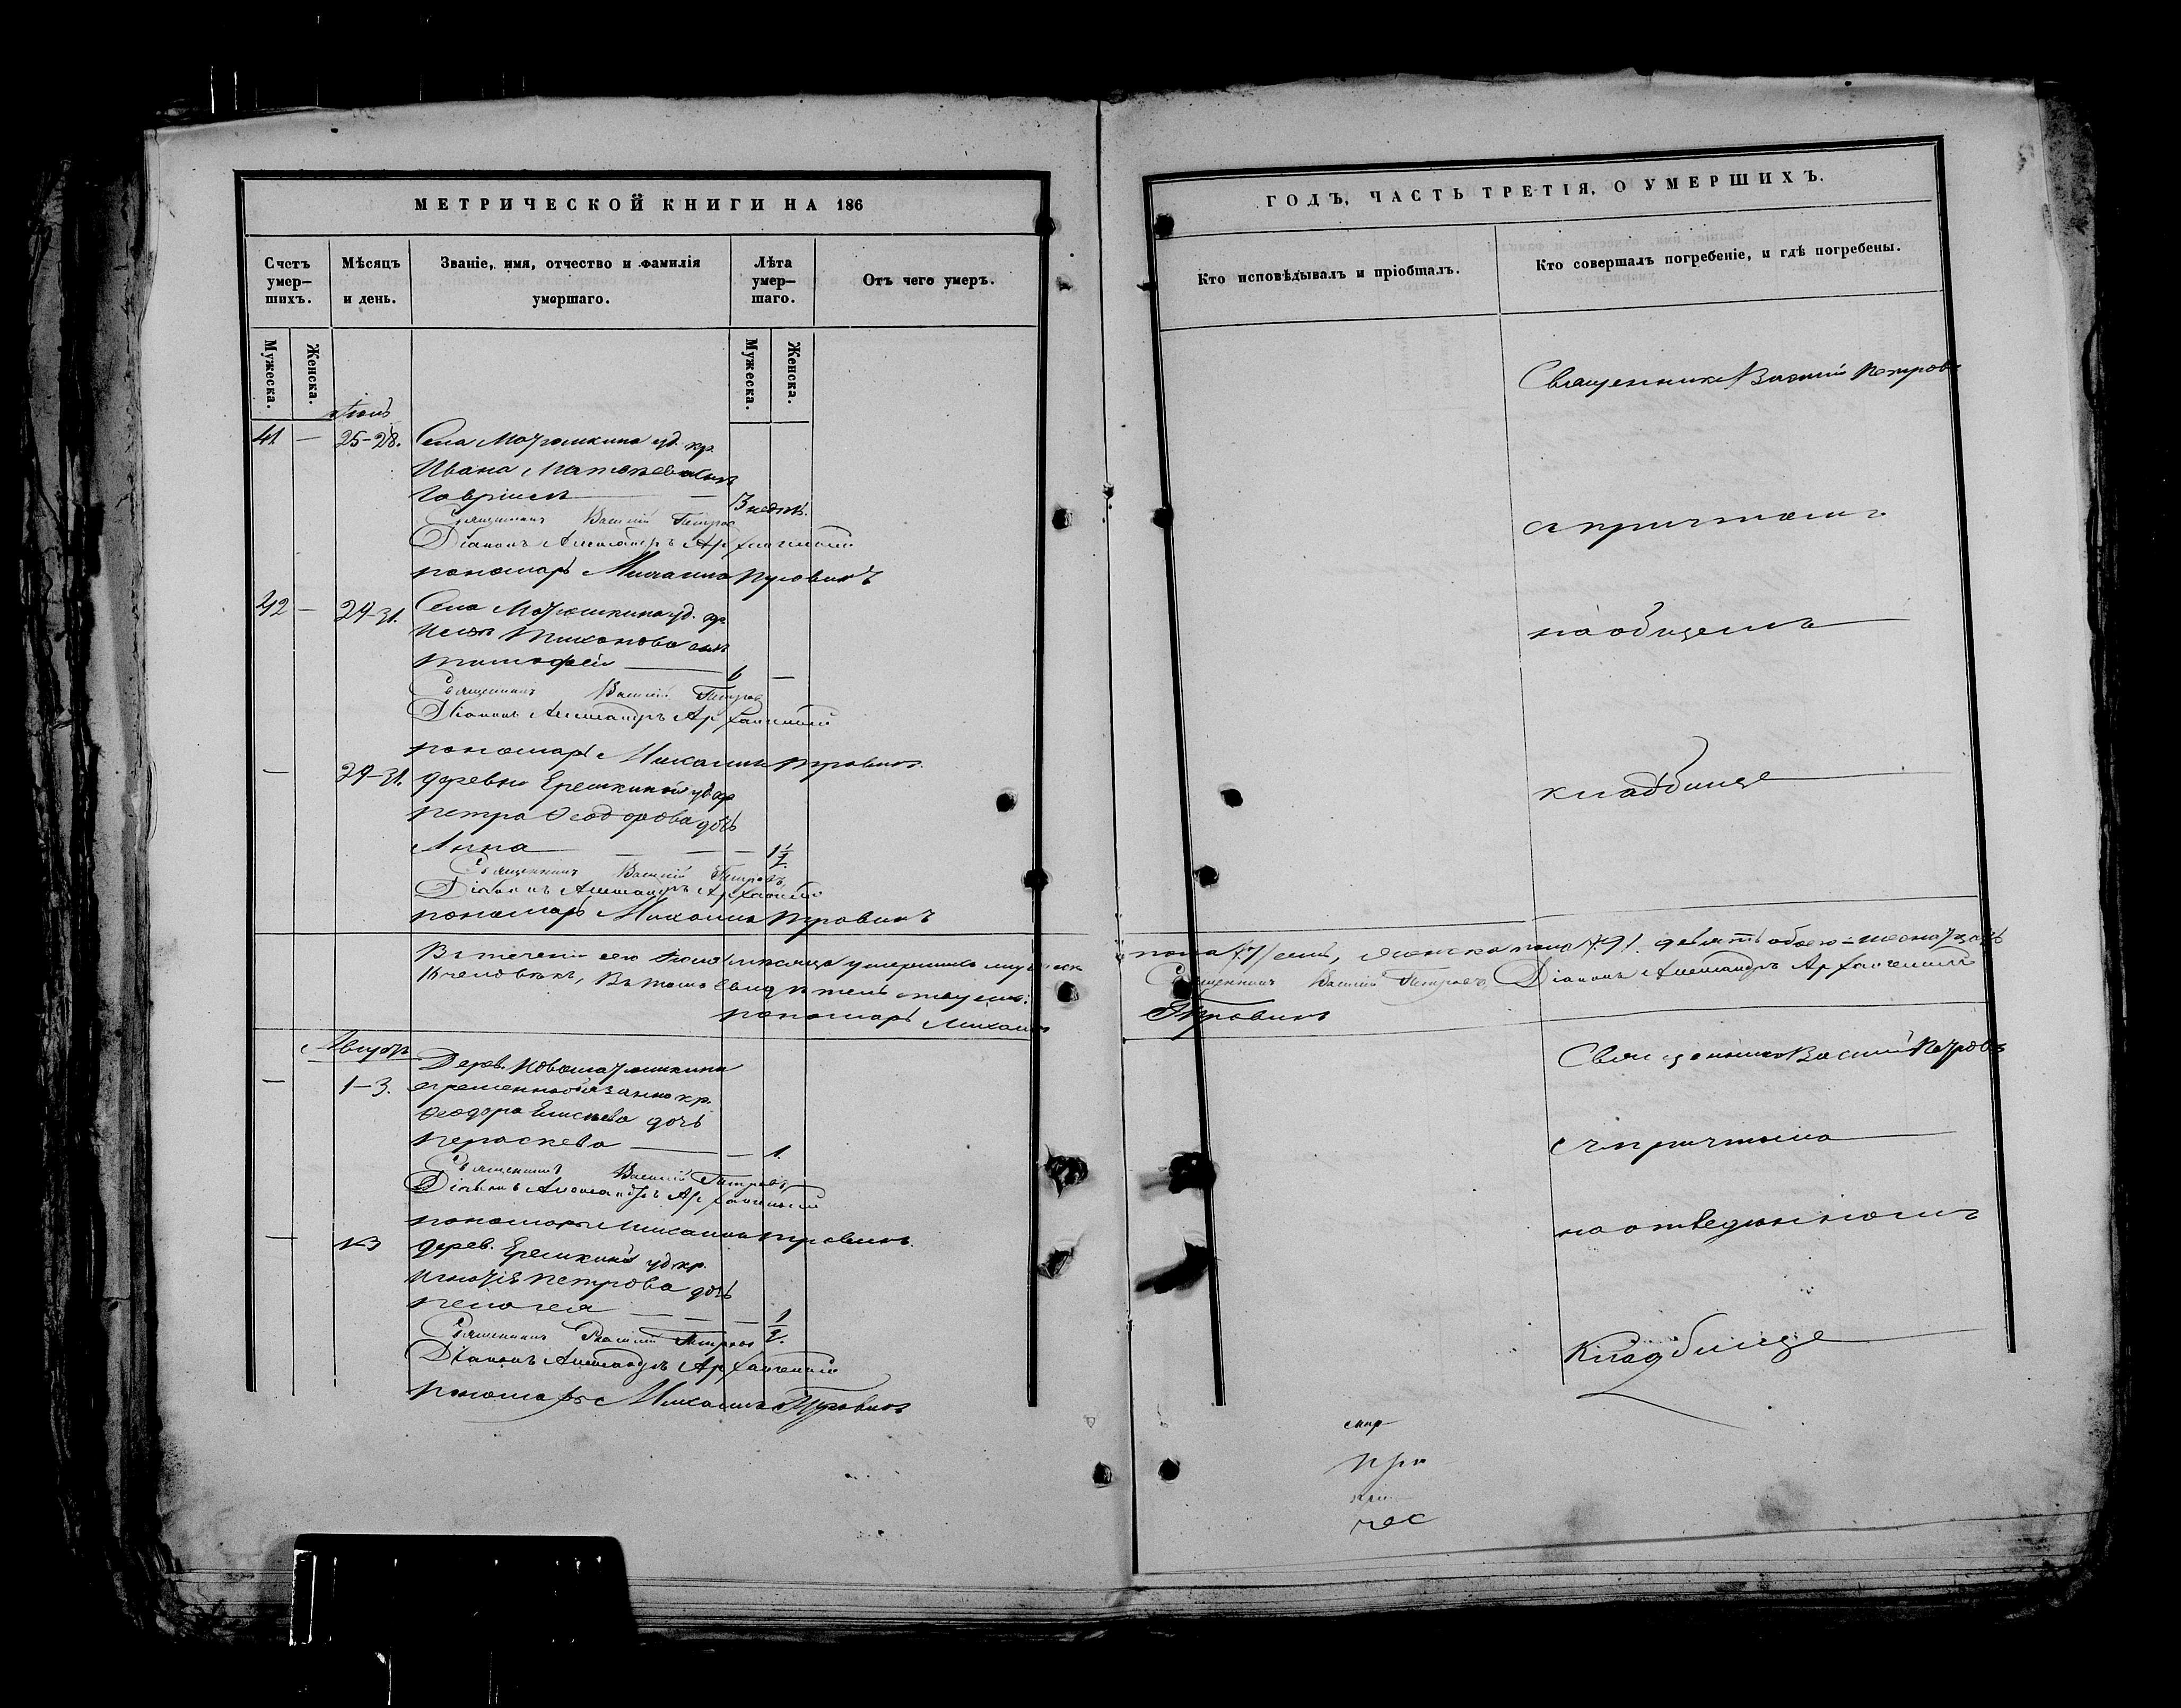 МЕТРИЧЕСКОЙ КНИГИ НА 186
Счетъ умер-шихъ.
Мѣсяцъ и день.
Званіе, имя, отчество и фамилія умершаго.
Лѣта умер-шаго.
Отъ чего умеръ.
Мужеска.
Женска.
Мужеска.
Женска.
41 — 25-28. Села Матюшкина уд. кр.
Ивана сынъ
Гавріилъ — 3 недѣл.
Священникъ Василій Петровъ
Діаконъ Александръ Архангельскій
пономарь Михаилъ
42 — 29-31. Села Матюшкина уд. кр.
Тихонова сынъ
Тимофей — 1 —
Священникъ Василій Петровъ
Діаконъ Александръ Архангельскій
пономарь Михаилъ
— 29-31. деревни Ерешкиной уд. кр.
Петра Ѳеодорова дочь
Анна — — — 1 1/2.
Священникъ Василій Петровъ
Діаконъ Александръ Архангельскій
пономарь Михаилъ
Въ теченіи сего Іюля мѣсяца умершихъ мужеска
16 человѣкъ, Въ томъ свидѣтельствуемъ:
пономарь Михаилъ
Августъ
— 1-3. Дерев.
кр.
Ѳеодора Елисеева дочь
Пераскева — — 1.
Священникъ Василій Петровъ
Діаконъ Александръ Архангельскій
пономарь Михаилъ
— 1-3 дерев. Ерешкиной уд. кр.
Игнатія Петрова дочь
Пелагея — — — 1/2.
Священникъ Василій Петровъ
Діаконъ Александръ Архангельскій
пономарь Михаилъ
ГОДЪ, ЧАСТЬ ТРЕТІЯ, О УМЕРШИХЪ.
Кто исповѣдывалъ и пріобщалъ.
Кто совершалъ погребеніе, и гдѣ погребены.
Священникъ Василій Петровъ
съ причтомъ
на общемъ
кладбище
пола (7) семь, женска пола (9). девять обоего
Священникъ Василій Петровъ Діаконъ Александръ Архангельскій
Священникъ Василій Петровъ
съ причтомъ
на отведенномъ
Кладбище